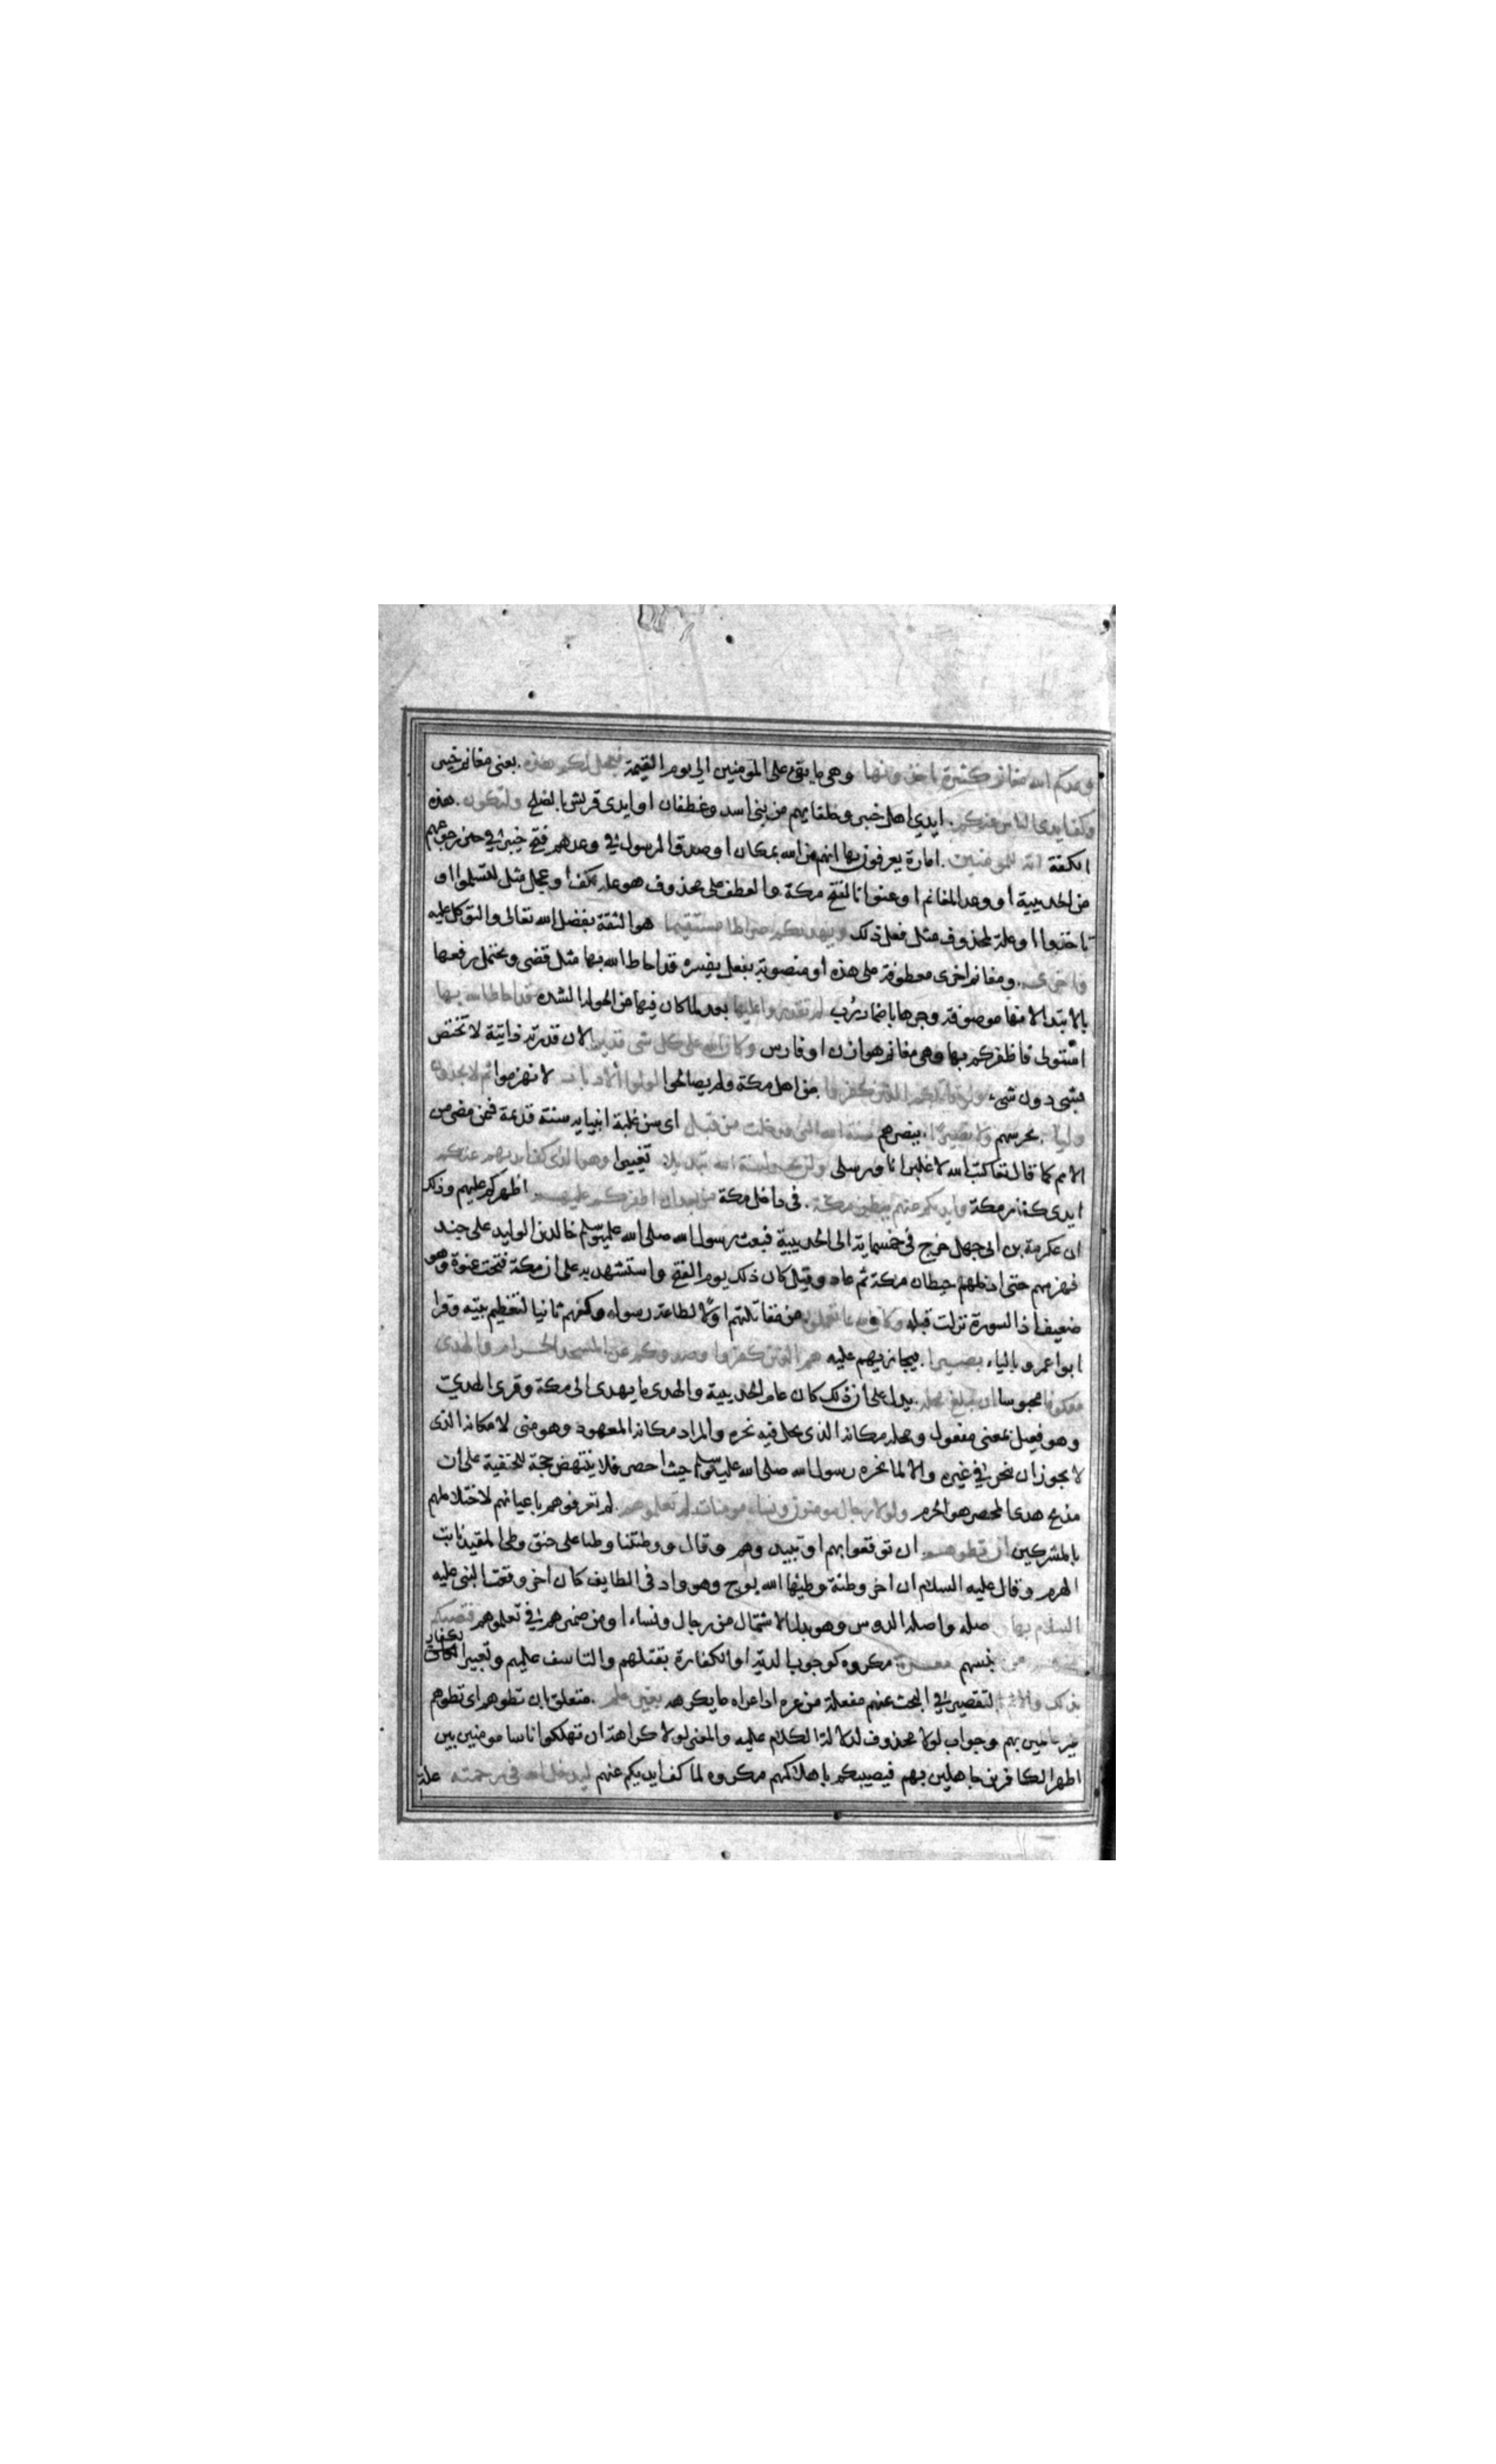 وعدكم الله مغانم كثيرة تاخذونها وهى ما يفئ على المومنين الى يوم القيمة فعجل لكم هذه يعنى مغانم خيبر
وكف ايدى الناس عنكم ايدي اهل خيبر وحلفايهم من بنى اسد وغطفان او ايدى قريش بالصلح ولتكون هذه
الكفة اية للمومنين امارة يعرفون بها انهم من الله بمكان او صدق الرسول في وعدهم فتح خيبر في حين رجوعهم
من الحديبية او وعد المغانم او عنوانا لفتح مكة والعطف على محذوف هو علة لكف او عجل مثل لتسلموا او
تاخذوا او علة لمحذوف مثل فعل ذلك ويهديكم صراطا مستقيما هو الثقة بفضل الله تعالى والتوكل عليه
واخرى ومغانم اخرى معطوفة على هذه او منصوبة بفعل يفسره قد احاط الله بها مثل قضى ويحتمل رفعها
بالابتدا لانها موصوفة وجرها باضمار رُب لم تقدروا عليها بعد لما كان فيها من الجولة لشدة قد احاط الله بها
استولى فاظفركم بها وهى مغانم هوازن او فارس وكان الله على كل شى قديرا لان قدرته ذاتية لا تختص
بشى دون شى ولو قاتلكم الذين كفروا من اهل مكة ولم يصالحوا لولوا الادبار لانهزموا ثم لا يجدون
وليا يحرسهم ولا نصيرا ينصرهم سنة الله التى قد خلت من قبل اى سن غلبة انبيايه سنة قديمة فيمن مضى من
الامم كما قال تعا كتب الله لاغلبن انا ورسلى ولن تجد لسنة الله تبديلا تغييرا وهو الذى كف ايديهم عنكم
ايدى كفار مكة وايديكم عنهم ببطن مكة فى داخل مكة من بعد ان اظفركم عليهم اظهركم عليهم وذلك
ان عكرمة بن ابى جهل خرج فى خمسماية الى الحديبية فبعث رسول الله صلى الله عليه وسلم خالد بن الوليد على جند
فهزمهم حتى ادخلهم حيطان مكة ثم عاد وقيل كان ذلك يوم الفتح واستشهد به على ان مكة فتحت عنوة وهو
ضعيف اذ السورة نزلت قبله وكان الله بما تعملون من مقاتلتهم اوّلا لطاعة رسوله وكفهم ثانيا لتعظيم بيته وقرا
ابو عمرو بالياء بصيرا فيجازيهم عليه هم الذين كفروا وصدوكم عن المسجد الحرام والهدى
معكوفا محبوسا ان يبلغ محله يدل على ان ذلك كان عام الحديبية والهدى ما يهدى الى مكة وقرى الهديّ
وهو فعيل بمعنى مفعول ومحله مكانه الذى يحل فيه نحره والمراد مكانه المعهود وهو منى لا مكانه الذى
لا يجوز ان ينحر في غيره والا لما نحره رسول الله صلى الله عليه وسلم حيث احصر فلا ينتهض حجة للحنفية على ان
مذبح هدى المحصر هو الحرم ولولا رجال مومنون ونساء مومنات لم تعلموهم لم تعرفوهم باعيانهم لاختلاطهم
بالمشركين ان تطوهم ان توقعوا بهم او تبيدوهم وقال ووطئتنا وطئا على حنق وطى المقيد نابت
الهرم وقال عليه السلام ان اخر وطئة وطئها الله بوج وهو واد فى الطايف كان اخر وقعة النبى عليه
السلام بها وصله واصله الدوس وهو بدل الاشتمال من رجال ونساء او من ضميرهم فى تعلموهم فتصيبكم
منهم من جهتهم معرة مكروه كوجوب الدية او الكفارة بقتلهم والتاسف عليهم وتعيير الكفار
بذلك والاثم بالتقصير في البحث عنهم مفعلة من عره اذا عراه ما يكرهه بغير علم متعلق بان تطوهم اى تطوهم
غير عالمين بهم وجواب لولا محذوف لدلالة الكلام عليه والمعنى لولا كراهة ان تهلكوا اناسا مومنين بين
اظهر الكافرين جاهلين بهم فيصيبكم باهلاكهم مكروه لما كف ايديكم عنهم ليدخل الله فى رحمته علة